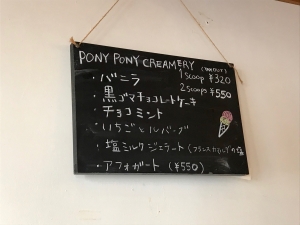 PONY PONY CREAMERY
1 Scoop ¥320
2 Scoops ¥550
・バニラ
・黒ゴマチョコレートケーキ
・チョコミント
・いちごとルバーブ
・塩ミルクジェラート(フランス の塩
・アフォガート (¥550)